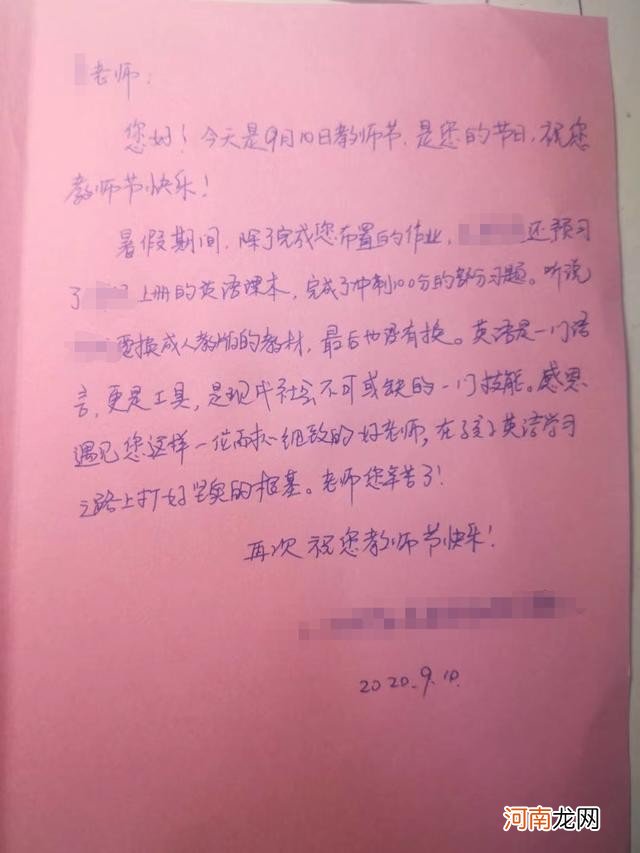 老师:
您好!今天是9月10日教师节,是您的节日,祝您
教师节快乐!
暑假期间,除了完成您布置的作业,还预习
了上册的英语课本,完成了冲刺100分的部分习题。听说
要换成人教版的教材,最后也没有换。英语是一门语
言,更是工具,是现代社会不可或缺的一门技能。感恩
遇见您这样一位耐心细致的好老师,在孩子英语学习
之路上打好坚实的根基。老师您辛苦了!
再次祝您教师节快乐!
2020.9.10.
河南龙网